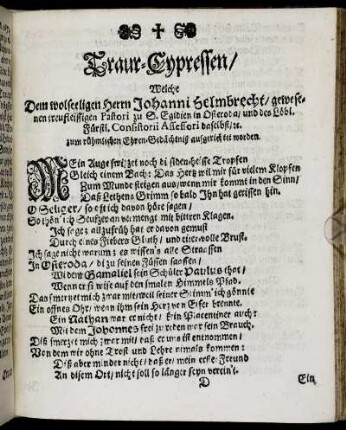 Traur-Cypressen/
Welche
Dem wolseeligen Herrn Johanni Helmbrecht/ gewese-
nen treufleissigen Pastori zu S. Egidien in Osteroda/ und des Löbl.
Fürstl. Consistorii Assessori daselbst/ ꝛc.
zum rühmlichen Ehren-Gedächtniß aufgerichtet worden.
MEin Auge switzet noch die siedenheisse Tropfen
Gleich einem Bach: Das Hertz wil mir für vielem Klopfen
Zum Munde steigen aus/ wenn mir kommt in den Sinn/
Daß Lethens Grimm so bald Ihn hat gerissen hin.
O Seliger/ so oft ich davon höre sagen/
So oft ich Seufzer an vermengt mit bittren Klagen.
Ich sage: allzufrüh hat er davon gemust
Durch eines Fiebers Gluht/ und eitervolle Brust.
Ich sage nicht warum? es wissen's alle Strassen
In Osteroda/ da zu seinen Füssen sassen/
Als dem Gamaliel sein Schüler Paulus that/
Wenn er sie wies auf den smalen Himmels Pfad.
Das smertzet mich zwar mit/ weil seiner Stimm' ich gönnte
Ein offnes Ohr/ wenn ihm sein Hertz von Eifer brennte.
Ein Nathan war er nicht/ kein Placentiner auch:
Mit dem Johannes frei zu reden war sein Brauch.
Diß smertzet mich zwar mit/ daß er uns ist entnommen/
Von dem wir ohne Trost und Lehre nimals kommen:
Diß aber minder nicht/ daß er/ mein erster Freund
An diesem Ort/ nicht soll so länger seyn verein't.
D Ein